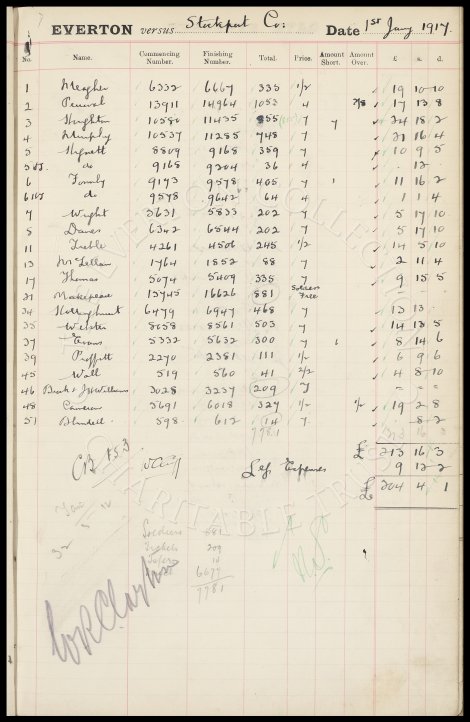 EVERTON versus Stockport Co: Date 1st Jany 1917.
No. Name. Commencing Number. Finishing Number. Total. Price. Amount Short. Amount Over. £ s. d.
1 Meagher 6332 6667 335 1/2 19 10 10
2 Percival 13911 14964 1053 4 2/8 17 13 8
3 Houghton 10580 11435 855 7 7 24 18 2
4 Murphy 10537 11285 748 7 21 16 4
5 Hignett 8809 9168 359 7 10 9 5
do 9168 9204 36 4 - 12 -
6 Formby 9173 9578 405 7 1 11 16 2
do 9578 9642 64 4 1 1 4
7 Wright 5631 5833 202 7 5 17 10
8 Davies 6342 6544 202 7 5 17 10
11 Treble 4261 4506 245 1/2 14 5 10
13 McLellan 1764 1852 88 7 2 11 4
17 Thomas 5074 5409 335 7 9 15 5
21 Makepeace 15745 16626 881 Soldiers Free -
34 Hottinghurst 6479 6947 468 7 13 13 -
35 Webster 8058 8561 503 7 14 13 5
37 Evans 5332 5632 300 7 1 8 14 6
39 Proffitt 2270 2381 111 1/2 6 9 6
45 Wall 519 560 41 2/2 4 8 10
46 3028 3237 209 7 - - -
48 Cameron 5691 6018 327 1/2 1/2 19 2 8
51 Blundell 598 612 14 7 - 8 2
7781
£ 213 16 3
CB 153 Less Expenses 9 12 2
£ 204 4 1
Soldiers 881
Tickets 209
14
6677
7781